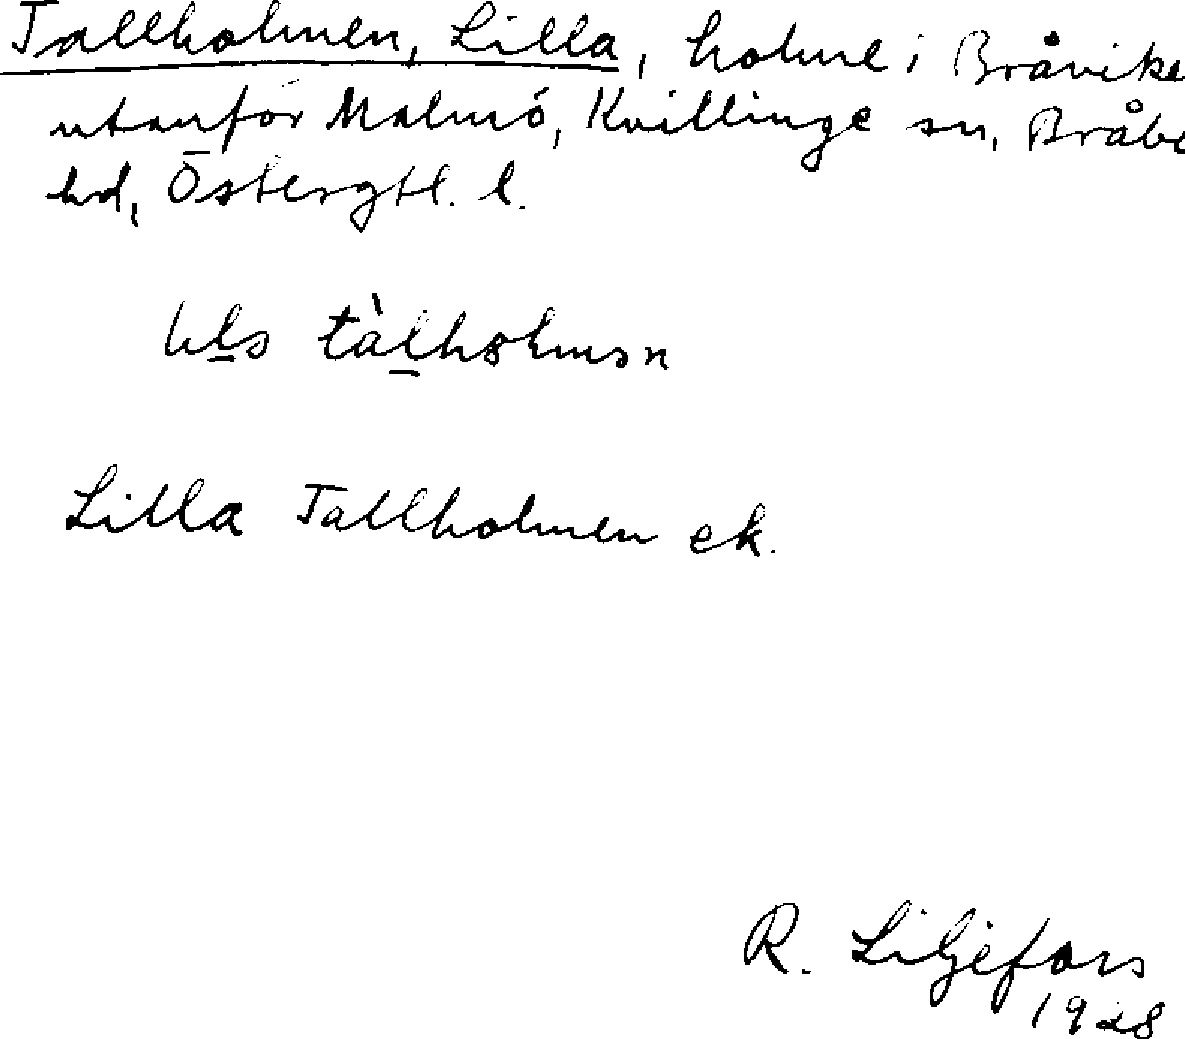 Tallholmen, Lilla, holme i Bråvike
utanför Malmö, Kvillinge sn, Bråbo
hd, Östergtl. l.
tàlholmən
Lilla Tallholmen ek.
R. Liljefors
1928